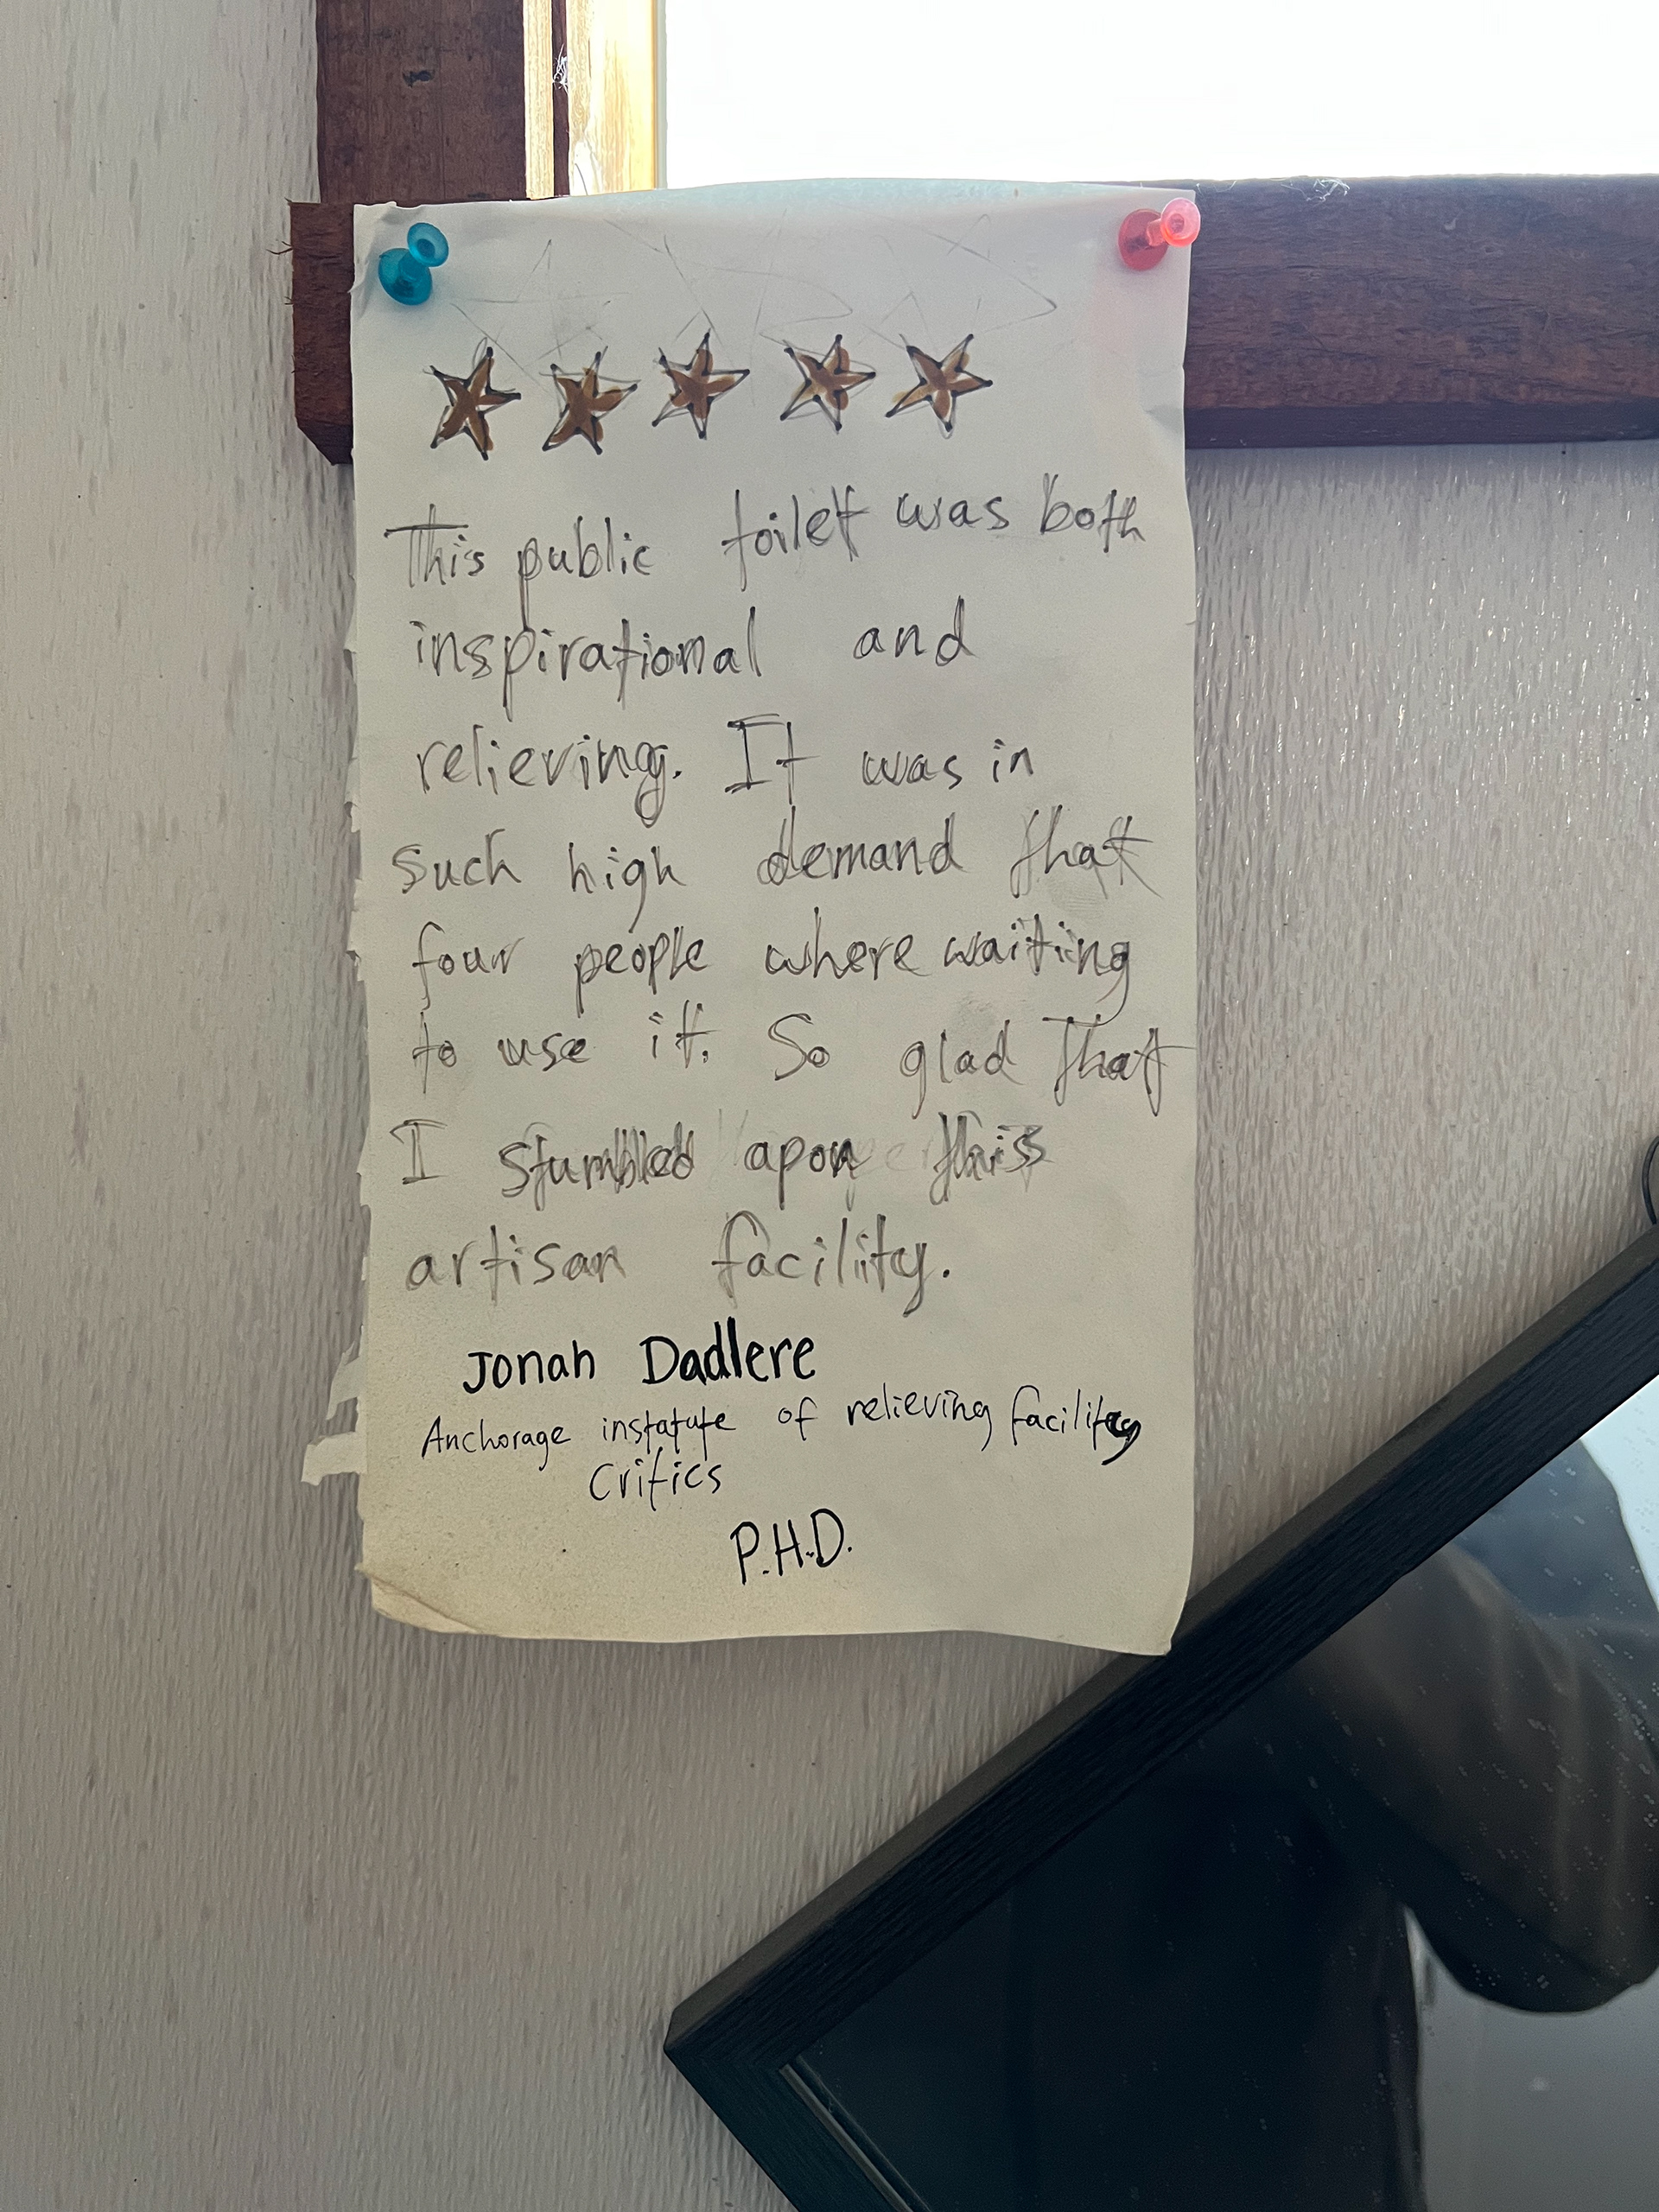 This public toilet was both
inspirational and
relieving. It was in
such high demand that
four people where waiting
to use it. So glad That
I stumbled apon this
artisan facility.
Jonah Dadlere
Anchorage instatute of relieving facility
Critics
P.H.D.